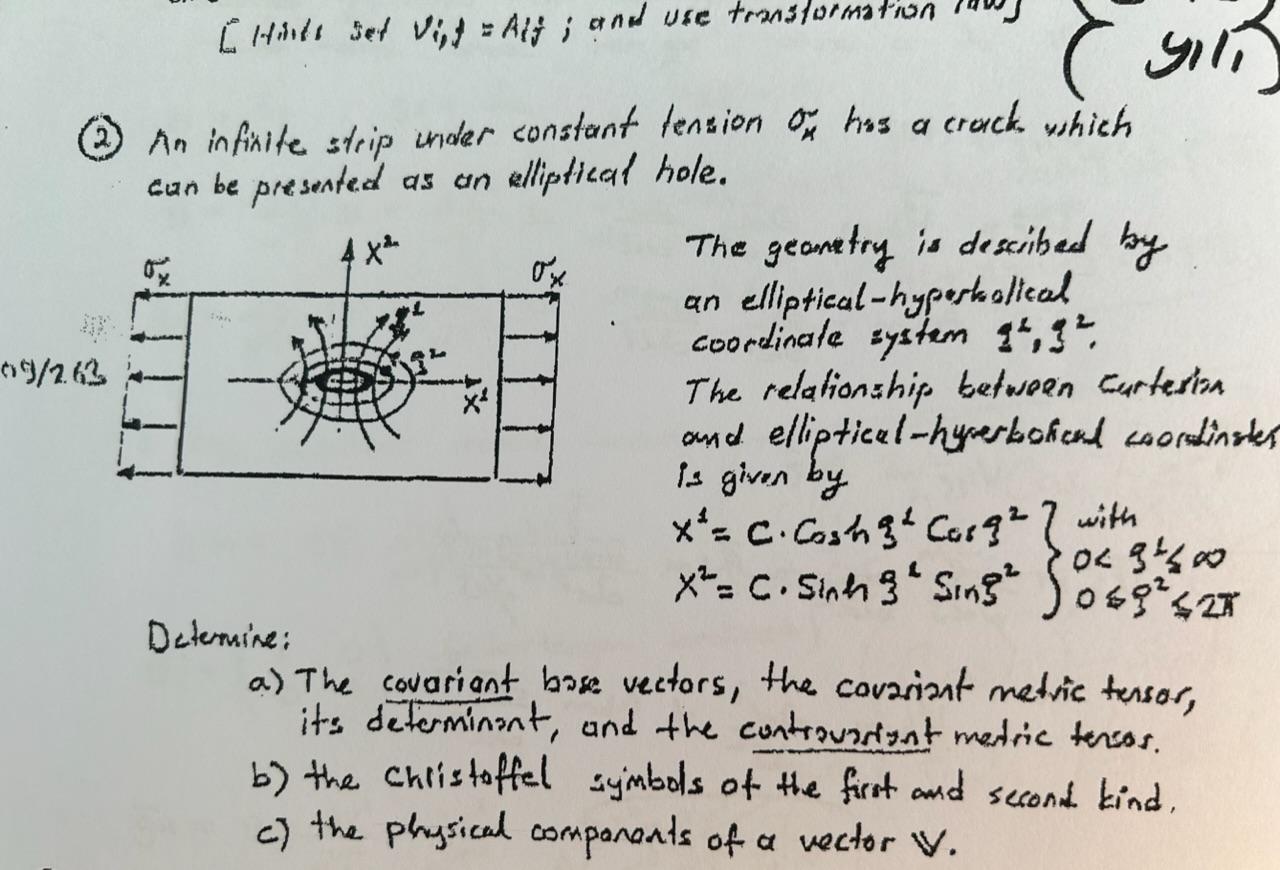 [ Hints set Vi,j = Aij ; and use transformation laws]
② An infinite strip under constant tension σx has a crack which
can be presented as an elliptical hole.
X²
σx
σx
ξ¹
ξ²
X¹
09/263
The geometry is described by
an elliptical-hyperbolical
coordinate system ξ¹, ξ².
The relationship between Cartesian
and elliptical-hyperbolical coordinates
is given by
X¹ = C. Cosh ξ¹ Cos ξ² } with
0< ξ¹ ≤ ∞
X² = C. Sinh ξ¹ Sin ξ²
0 ≤ ξ² ≤ 2π
Determine:
a) The covariant base vectors, the covariant metric tensor,
its determinant, and the contravariant metric tensor.
b) the Christoffel symbols of the first and second kind.
c) the physical components of a vector V.